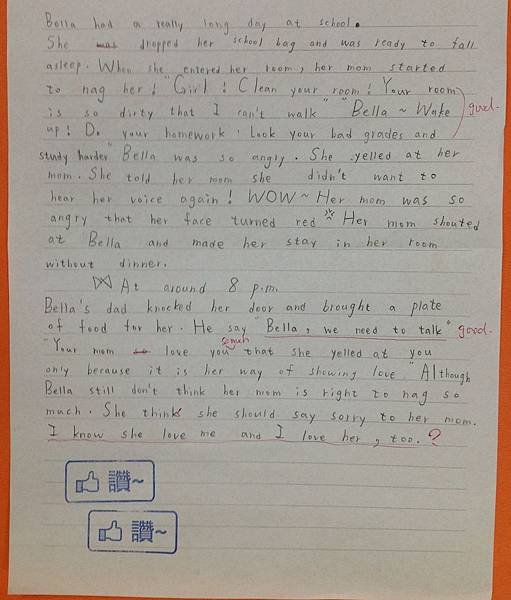 Bella had a really long day at school.
She was dropped her school bag and was ready to fall
asleep. When she entered her room, her mom started
to nag her! "Girl! Clean your room! Your room
is so dirty that I can't walk" "Bella ~ Wake good.
up! Do your homework. Look your bad grades and
study harder" Bella was so angry. She yelled at her
mom. She told her mom she didn't want to
hear her voice again! WOW~ Her mom was so
angry that her face turned red Her mom shouted
at Bella and made her stay in her room
without dinner.
At around 8 p.m.
Bella's dad knocked her door and brought a plate
of food for her. He say "Bella, we need to talk" good.
"Your mom so love you so much that she yelled at you
only because it is her way of showing love." Although
Bella still don't think her mom is right to nag so
much. She think she should say sorry to her mom.
I know she love me and I love her, too. ?
讚~
讚~